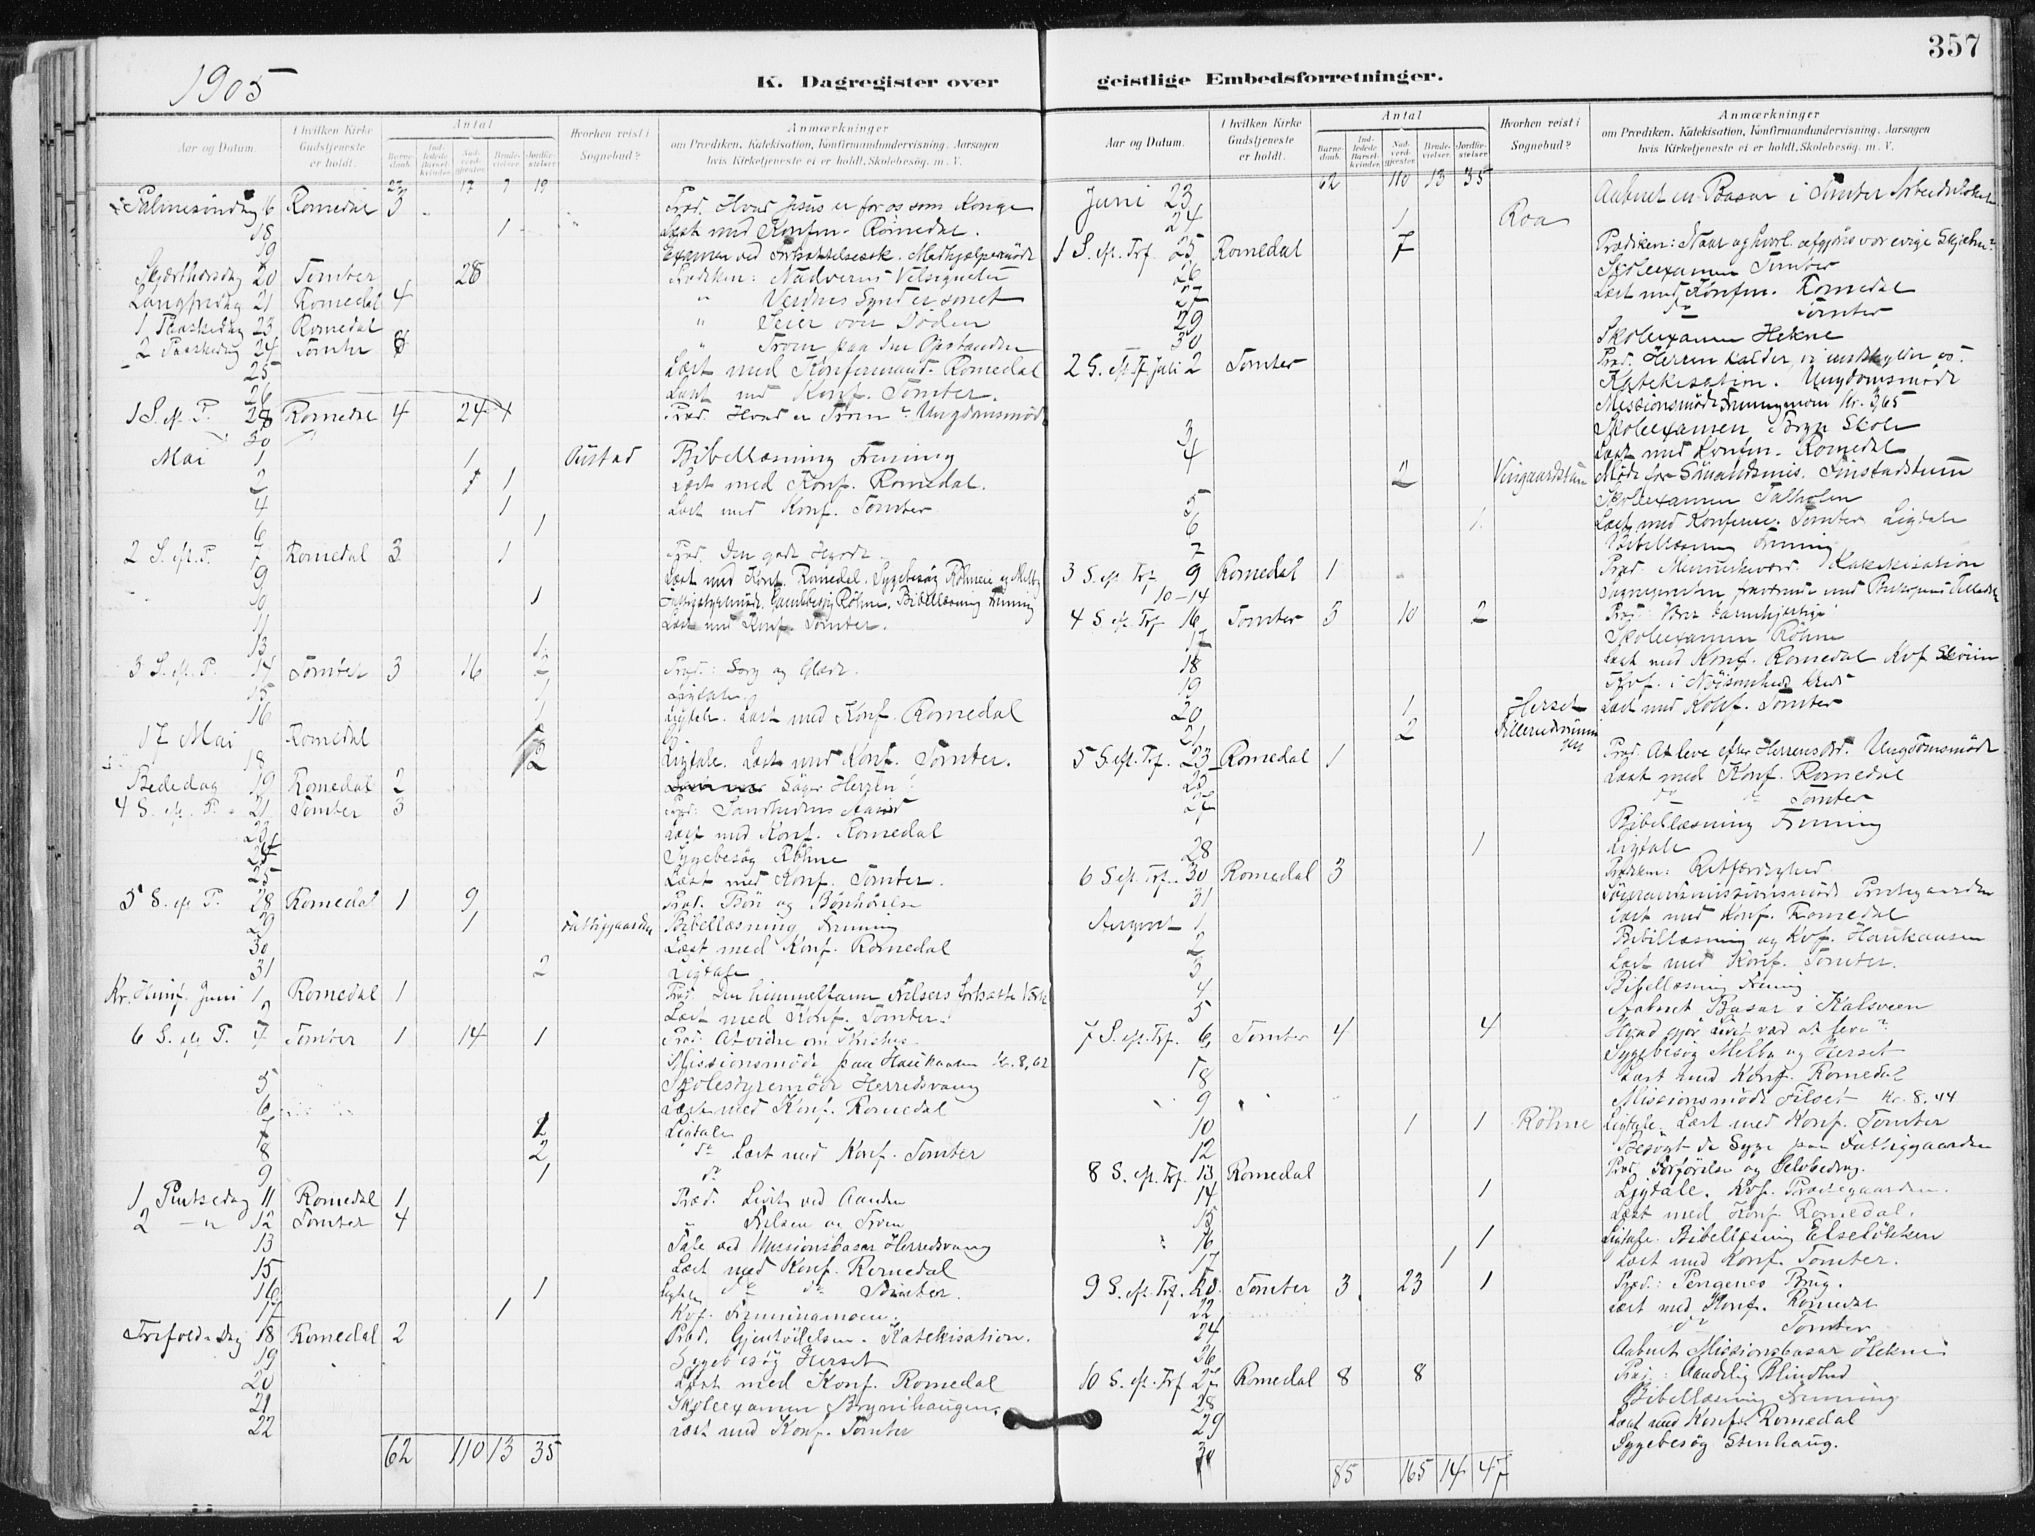 1905
K. Dagregister over
Aar og Datum.
I hvilken Kirke Gudstjeneste er holdt.
Antal
Barnedaab.
Indledede Barselkvinder.
Nadverdgjester.
Brudevielser.
Jordfæstelser.
Hvorhen reist i Sognebud?
Anmærkninger
om Prædiken, Katekisation, Konfirmandundervisning, Aarsagen
hvis Kirketjeneste ei er holdt, Skolebesøg. m. V.
27 17 7 19
Palmesøndag 16 Romedal 3 Præd. Hvad Jesus er for os som Konge
18 1 Læst med Konfm. Romedal.
19 Examen ved Fortsættelsessk.
Skjærthorsdag 20 Tomter 28 Prædiken: Nadverens Velsignelse
Langfredag 21 Romedal 4 " Verdens Synd er sonet
1 Paaskedag 23 Romedal " Seier over Døden
2 Paaskedag 24 Tomter 8 " Troen paa den Opstandne
25 Læst med Konfirmand. Romedal
26 Læst med Konf. Tomter.
1 S. ef. P. Romedal 4 24 Præd. Hvad er Troen? Ungdomsmøde
30
Mai 1 1 Austad Bibellæsning Frening
2 1 Læst med Konf. Romedal.
4 1 Læst med Konf. Tomter
6 1
2 S. ef. P. 7 Romedal 3 1 Præd. Den gode Hyrde
9 Læst med Konf. Romedal. Sygebesøg Røhne
10 1 Bibellæsning Frening
11 Læst med Konf. Tomter.
13 1
3 S. ef. P. 14 Tomter 3 16 Præd: Sorg og Glæde.
15 1 Ligtale.
16 1 Ligtale. Læst med Konf. Romedal
17 Mai Romedal
18 2 Ligtale. Læst med Konf. Tomter.
Bededag 19 Romedal 2 Søger Herren!
4 S. ef. P. 21 Tomter 3 Præd: Sandhedens Aand
23 Læst med Konf. Romedal
24 Sygebesøg Røhne
25 Læst med Konf. Tomter.
5 S. ef P. 28 Romedal 1 9 Præd. Bøn og Bønhørelse
29 1 Fattiggaarden Bibellæsning Frening
30 Læst med Konf. Romedal
31 2 Ligtale
Kr. Himf. Juni 1 Romedal 1 Præd.
Læst med Konf. Tomter.
6 S. ef P. 4 Tomter 1 14 1 Præd: At vidne om Kristus
Missionsmøde paa Haukaasen Kr. 8,62
5 Skolestyremøde Herredsvang
6 Læst med Konf. Romedal
7 1 Ligtale
8 2 do Læst med Konf. Tomter
9 1 do
1 Pintsedag 11 Romedal 1 Præd. Livet ved Aanden
2 – " 12 Tomter 4 " Frelsen og Troen
13 Tale ved Missionsbasar Herredsvang
15 Læst med Konf. Romedal
16 1 Ligtale do do Tomter.
17 1 Kvf.
Trefold. Dag 18 Romedal 2 Præd. Gjenfødelsen. Katekisation.
19 Sygebesøg Herset
20 Læst med Konf. Romedal
21 Skoleexamen Brynihaugen.
22 Læst med Konf. Tomter
62 110 13 35
357
geistlige Embedsforretninger.
Aar og Datum.
I hvilken Kirke Gudstjeneste er holdt.
Antal
Barnedaab.
Indledede Barselkvinder.
Nadverdgjester.
Brudevielser.
Jordfæstelser.
Hvorhen reist i Sognebud?
Anmærkninger
om Prædiken, Katekisation, Konfirmandundervisning, Aarsagen
hvis Kirketjeneste ei er holdt, Skolebesøg. m. V.
62 110 13 35
Juni 23 Aabnet en Basar i Tomter Arbeidslokale
24 1 Roa
1 S. ef. Trf. 25 Romedal 7 Prædiken: Naar og hvorl. afgjøres vor evige Skjæbne?
26 Skoleexamen Tomter
27 Læst med Konfm. Romedal
29 do Tomter
30 Skoleexamen Hekne
2 S. ef. Tf. Juli 2 Tomter Præd. Herren kalder, vi undskylder os.
Katekisation. Ungdomsmøde
Missionsmøde Kr. 3,65
3 Skoleexamen Bryn Skole
4 Læst med Konfm. Romedal
2
5 Skoleexamen
6 1 Læst med Konferm. Tomter Ligtale
7 Bibellæsning Frening
3 S. ef. Trf. 9 Romedal 1 Præd. Katekisation
10–14
4 S ef. Trf. 16 Tomter 3 10 2 Præd: Vær barmhjertige!
17 Skoleexamen Røhne
18 Læst med Konf. Romedal Kvf
19 Kvf. i
20 1 Herset Læst med Konf. Tomter
21 2
5 S. ef. Trf. 23 Romedal 1 Præd. At leve efter Herrens Ord. Ungdomsmøde
25 Læst med Konf. Romedal
27 do do Tomter
Bibellæsning Frening
28 1 Ligtale
6 S ef. Trf. 30 Romedal 3 Prædiken: Retfærdighed
31 Præstegaarden
August 1 Læst med Konf. Romedal
2 Bibellæsning og Kvf. Haukaasen
3 Læst med Konf. Tomter.
4 Bibellæsning Frening
5 Aabnet Basar i Kalsveen
7 S. ef. Trf. 6 Tomter 4 4 Hvad gjør Livet værd at leve?
Sygebesøg Melby og Herset
8 Læst med Konf. Romedal
9 Missionsmøde Filset Kr. 8,44
10 1 1 Røhne Ligtale. Læst med Konf. Tomter
12 Besøgt de Syge paa Fattiggaarden
8 S. ef. Trf. 13 Romedal Præd. Forførelse og Selvbedrag.
14 1 Ligtale. Kvf. Præstegaarden.
15 Læst med Konf. Romedal.
16 1 Ligtale. Bibellæsning Elseløkken
17 1 Læst med Konf. Tomter.
9 S. ef. Trf. 20 Tomter 3 23 1 Præd.: Pengenes Brug.
22 Læst med Konf. Romedal
24 do Tomter
26 Aabnet Missionsbasar Hekne
10 S. ef. Trf 27 Romedal 8 8 Præd.: Aandelig Blindhed
28 Bibellæsning Frening
29 Læst med Konf. Romedal
30 Sygebesøg Stenhaug.
85 165 14 47